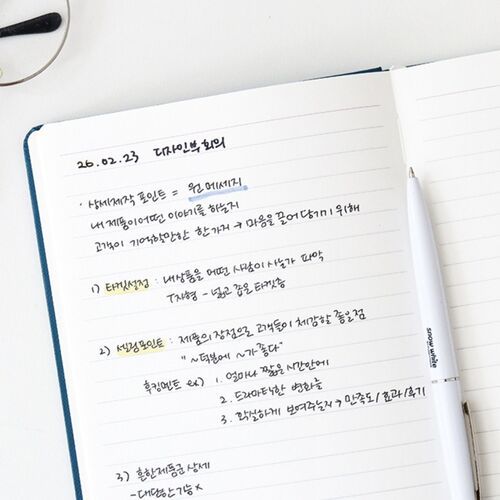 26.02.23 디자인부 회의
· 상세제작 포인트 = 원 메세지
내 제품이 어떤 이야기를 하는지
고객이 기억할만한 한가지 → 마음을 끌어 당기기 위해
1) 타겟설정 : 내상품을 어떤 사람이 사는가 파악
T자형 - 넓고 좁은 타겟층
2) 셀링포인트 : 제품의 장점으로 고객들이 체감할 좋을점
"~덕분에 ~가 좋다"
후킹멘트 ex) 1. 얼마나 짧은 시간안에
2. 드라마틱한 변화를
3. 확실하게 보여주는지 → 만족도/효과/후기
3) 흔한제품군 상세
snow white